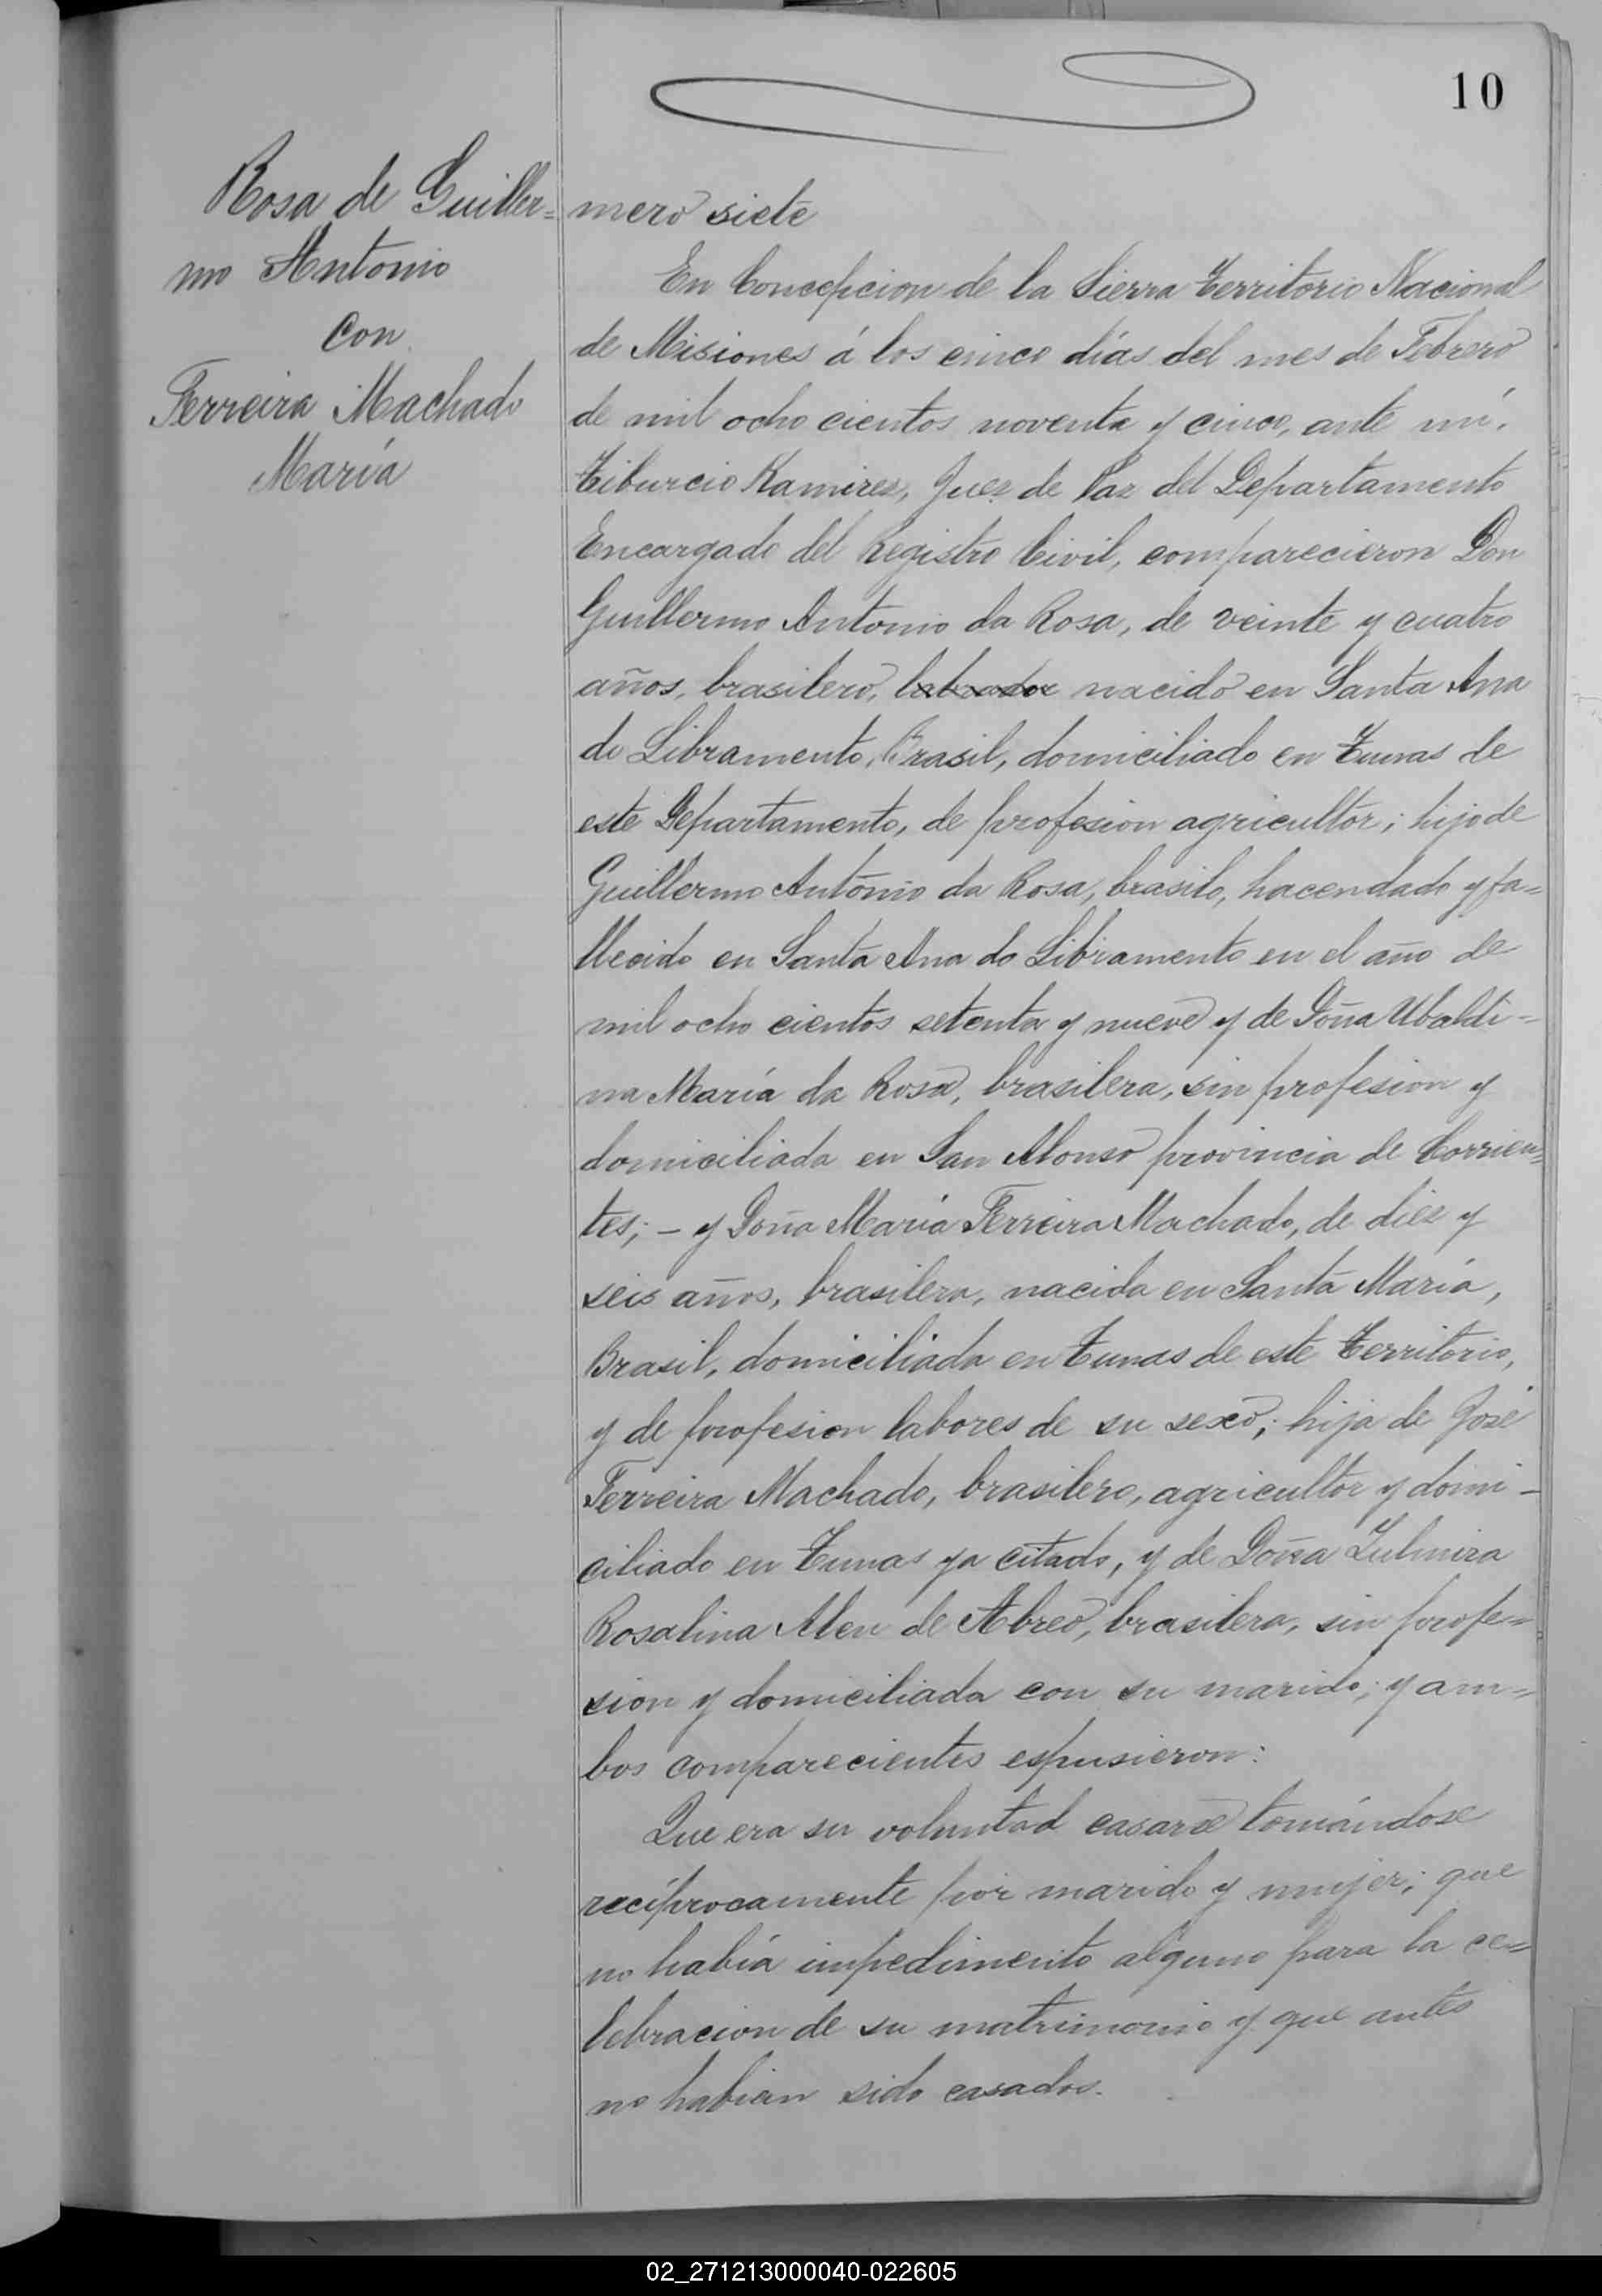 10
Rosa de Guiller=
mo Antonio
Con
Ferreira Machado
María
mero siete
En Concepcion de la Sierra Territorio Nacional
de Misiones á los cinco días del mes de Febrero
de mil ocho cientos noventa y cinco, ante mí,
Tiburcio Ramirez, Juez de Paz del Departamento
Encargado del Registro Civil, comparecieron Don
Guillermo Antonio da Rosa, de veinte y cuatro
años, brasilero, labrador nacido en Santa Ana
do Libramento, Brasil, domiciliado en Tunas de
este Departamento, de profesion agricultor; hijo de
Guillermo Antonio da Rosa, brasilo, hacendado y fa=
llecido en Santa Ana do Libramento en el año de
mil ocho cientos setenta y nueve y de Doña Ubaldi-
na María da Rosa, brasilera, sin profesion y
domiciliada en San Alonso provincia de Corrien=
tes; - y Doña María Ferreira Machado, de diez y
seis años, brasilera, nacida en Santa María,
Brasil, domiciliada en Tunas de este Territorio,
y de profesion labores de su sexo; hija de José
Ferreira Machado, brasilero, agricultor y domi-
ciliado en Tunas ya citado, y de Doña Zulmira
Rosalina Alen de Abreo, brasilera, sin profe=
sion y domiciliada con su marido; y am=
bos comparecientes espusieron:
Que era su voluntad casarse tomándose
recíprocamente por marido y mujer; que
no había impedimento alguno para la ce=
lebracion de su matrimonio y que antes
no habian sido casados.
02_271213000040-022605